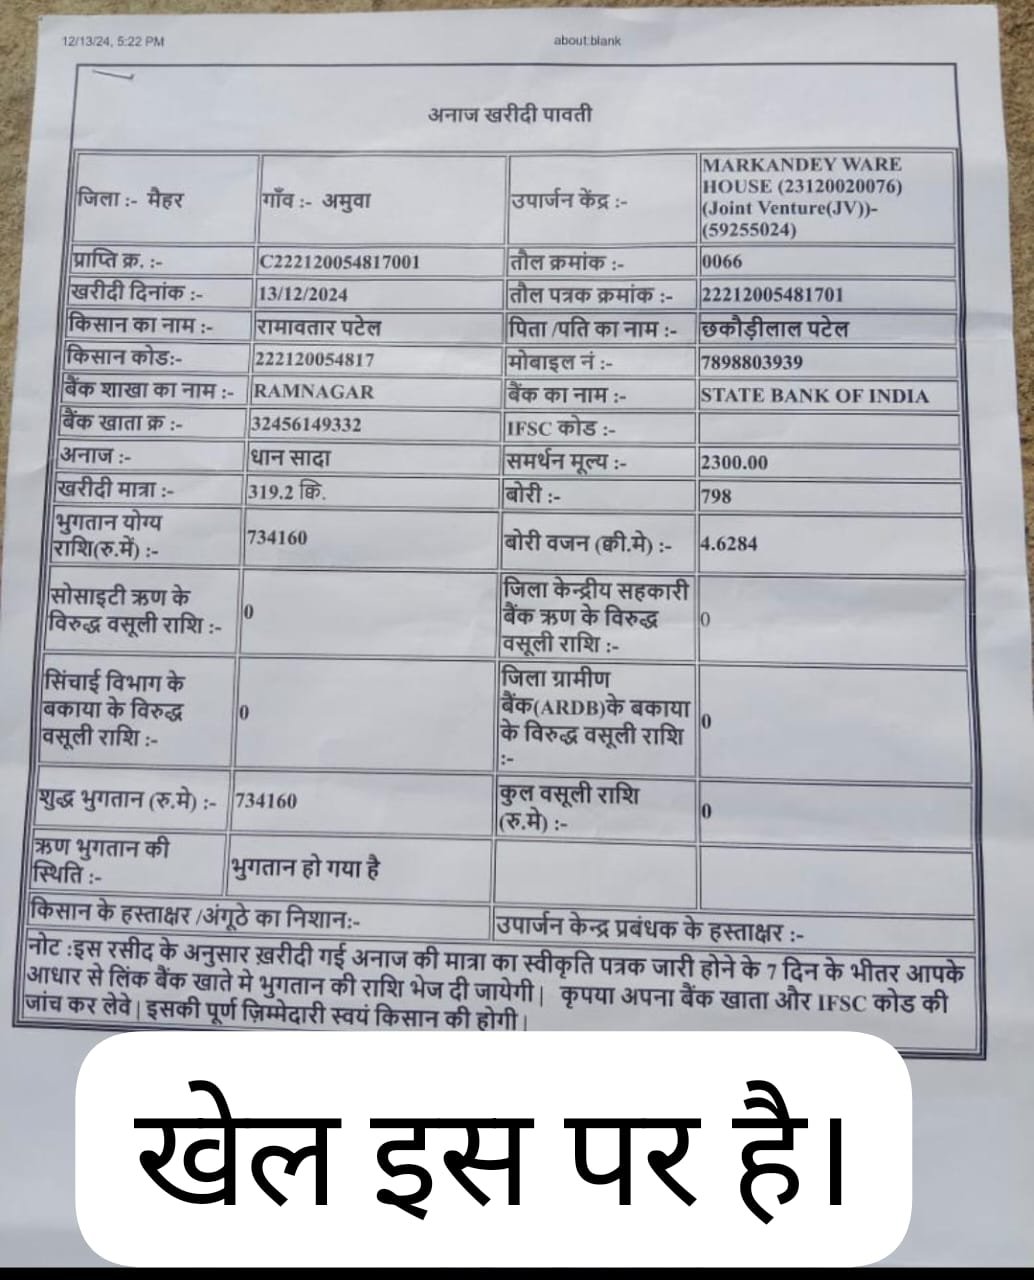 12/13/24, 5:22 PM about:blank
अनाज खरीदी पावती
जिला :- मैहर गाँव :- अमुवा उपार्जन केंद्र :- MARKANDEY WARE
HOUSE (23120020076)
(Joint Venture(JV))-
(59255024)
प्राप्ति क्र. :- C222120054817001 तौल क्रमांक :- 0066
खरीदी दिनांक :- 13/12/2024 तौल पत्रक क्रमांक :- 22212005481701
किसान का नाम :- रामावतार पटेल पिता /पति का नाम :- छकौड़ीलाल पटेल
किसान कोड:- 222120054817 मोबाइल नं :- 7898803939
बैंक शाखा का नाम :- RAMNAGAR बैंक का नाम :- STATE BANK OF INDIA
बैंक खाता क्र :- 32456149332 IFSC कोड :-
अनाज :- धान सादा समर्थन मूल्य :- 2300.00
खरीदी मात्रा :- 319.2 क्वि. बोरी :- 798
भुगतान योग्य
राशि(रु.में) :- 734160 बोरी वजन (क्वी.मे) :- 4.6284
सोसाइटी ऋण के
विरुद्ध वसूली राशि :- 0
जिला केन्द्रीय सहकारी
बैंक ऋण के विरुद्ध
वसूली राशि :- 0
सिंचाई विभाग के
बकाया के विरुद्ध
वसूली राशि :- 0
जिला ग्रामीण
बैंक(ARDB)के बकाया
के विरुद्ध वसूली राशि
:- 0
शुद्ध भुगतान (रु.मे) :- 734160
कुल वसूली राशि
(रु.मे) :- 0
ऋण भुगतान की
स्थिति :- भुगतान हो गया है
किसान के हस्ताक्षर /अंगूठे का निशान:- उपार्जन केन्द्र प्रबंधक के हस्ताक्षर :-
नोट :इस रसीद के अनुसार ख़रीदी गई अनाज की मात्रा का स्वीकृति पत्रक जारी होने के 7 दिन के भीतर आपके
आधार से लिंक बैंक खाते मे भुगतान की राशि भेज दी जायेगी| कृपया अपना बैंक खाता और IFSC कोड की
जांच कर लेवे| इसकी पूर्ण ज़िम्मेदारी स्वयं किसान की होगी|
खेल इस पर है।